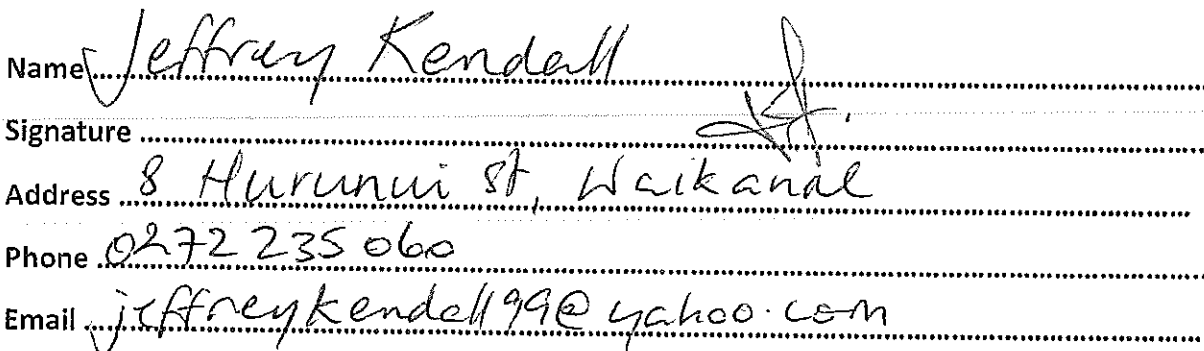 Name Jeffrey Kendall
Signature
Address 8 Hurunui St, Waikanae
Phone 0272 235 060
Email jeffreykendall99@yahoo.com